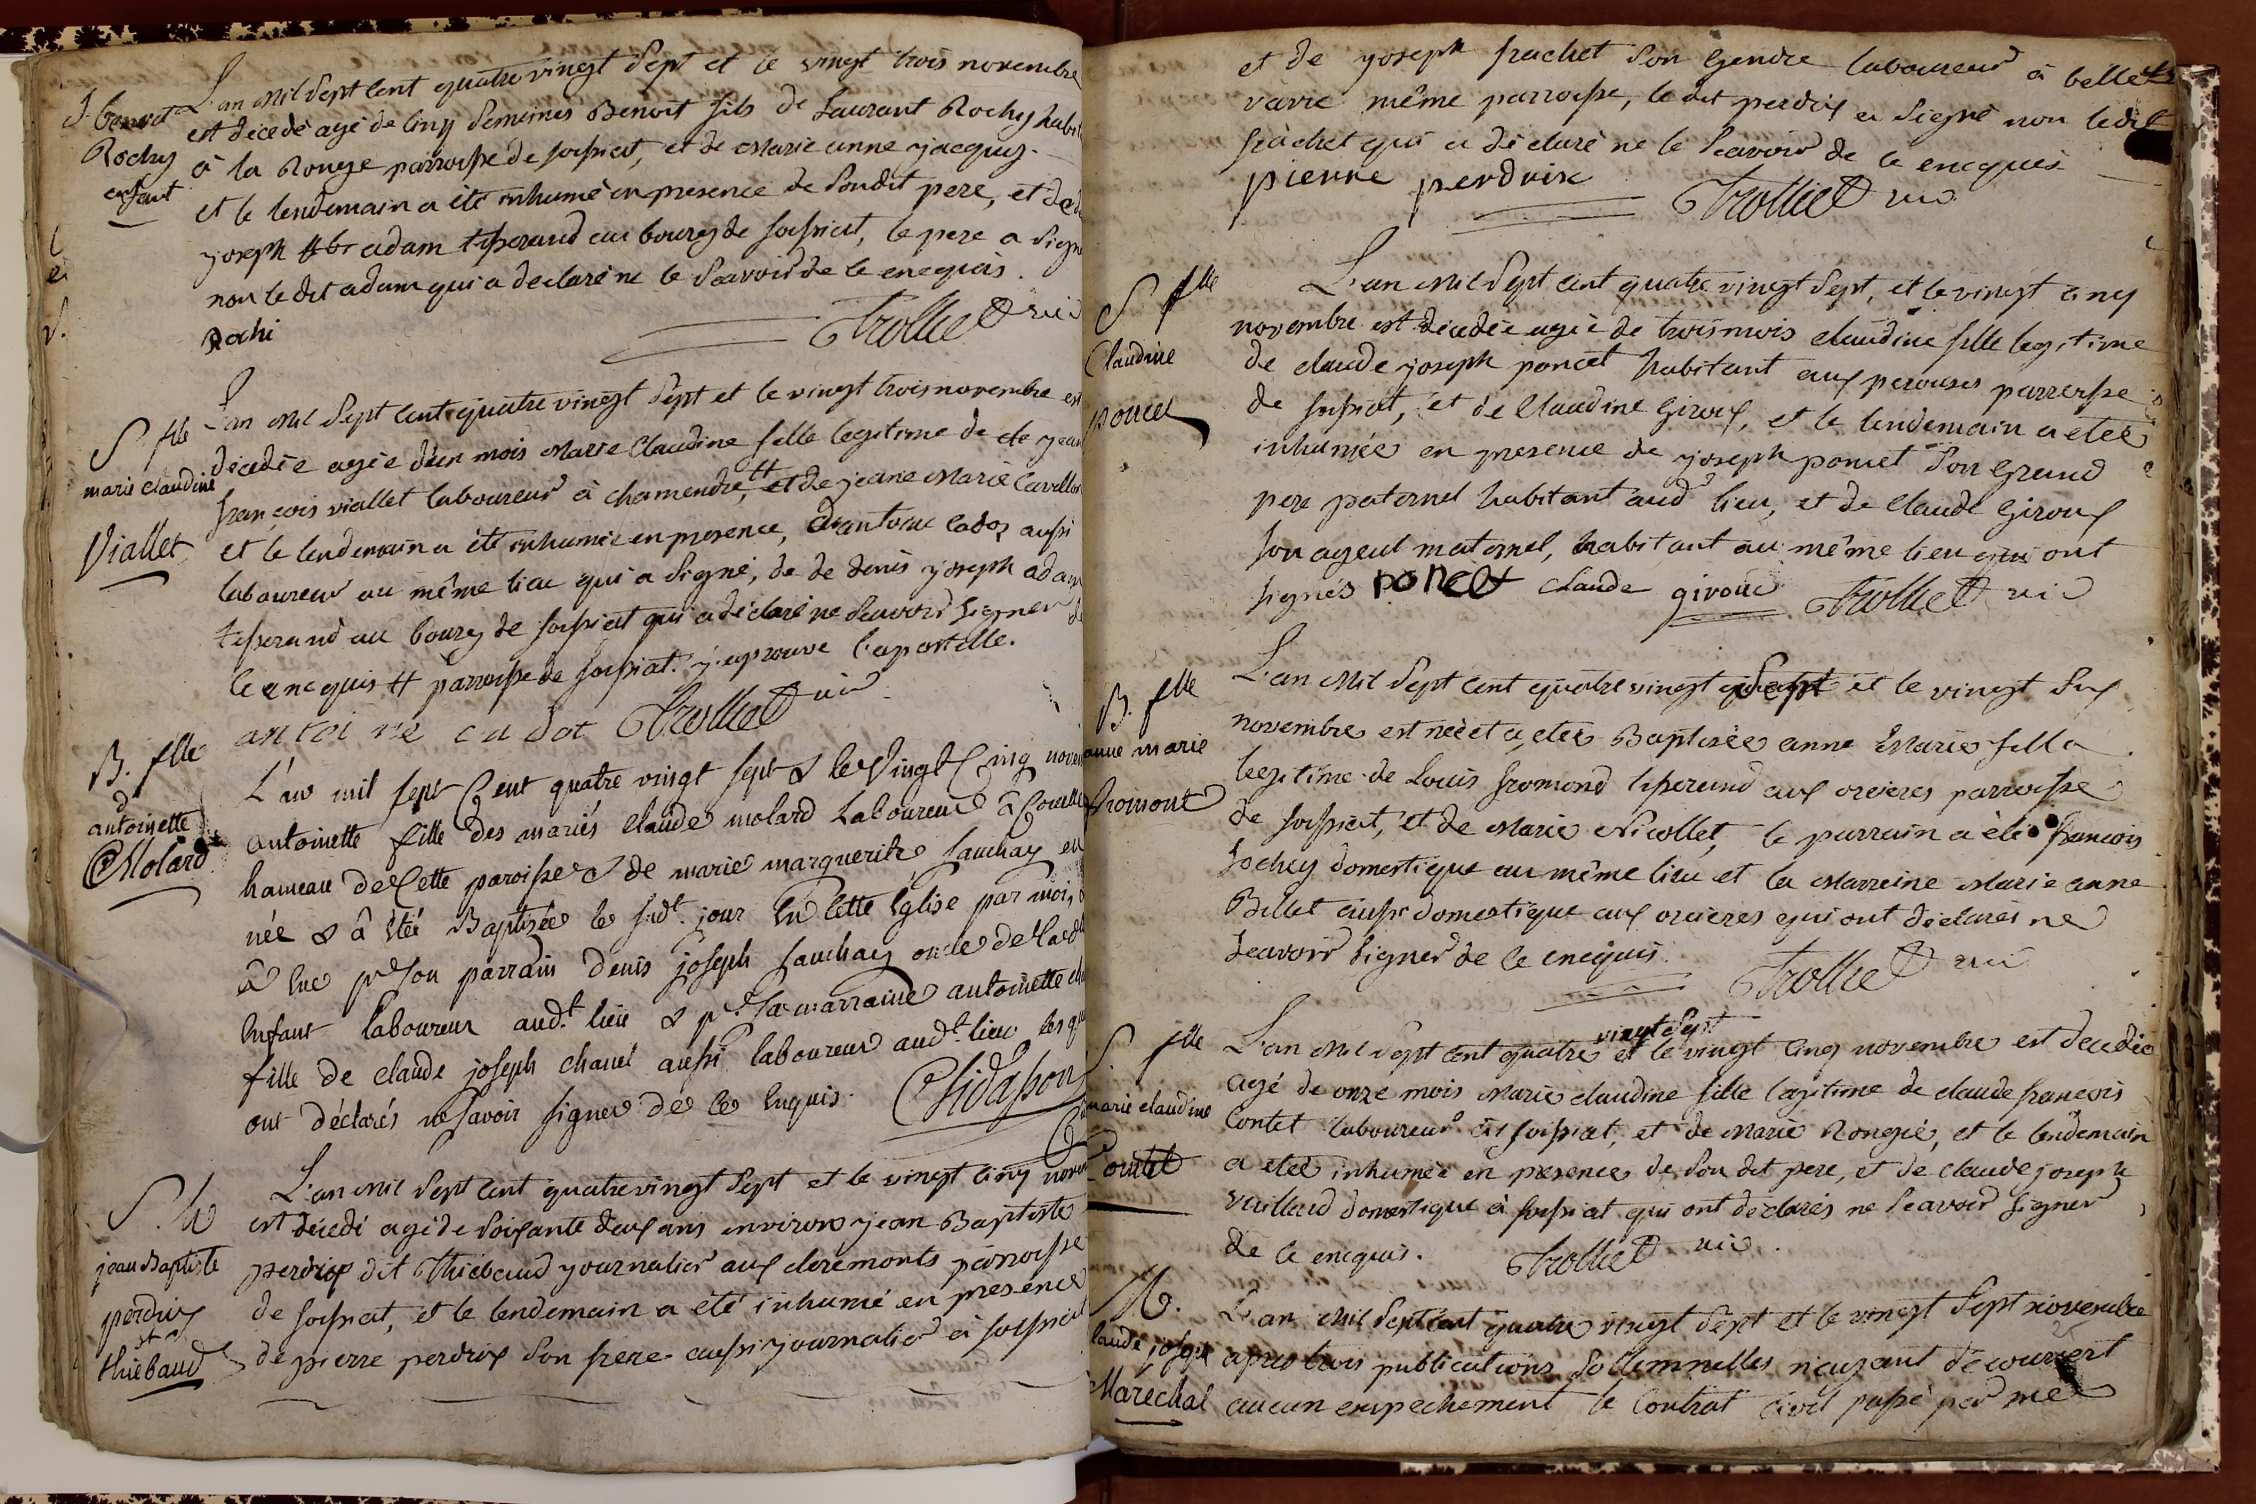 S. benoit
Rochy
enfant
L'an mil sept cent quatre vingt sept et le vingt trois novembre
est décédé agé de cinq semeines Benoit fils de Laurant Rochy habit
à la Rouge parroisse de foissiat, et de Marie anne jacquez
et le lendemain a été inhumé en presence de soudit pere, et de
joseph adam tisserand au bourg de foissiat, le pere a signé
non le dit adam qui a declaré ne le scavoir de ce enequis.
Rochi Trolliet vic
S flle
marie claudine
Viallet
L'an mil sept cent quatre vingt sept et le vingt trois novembre est
décédée agée d'un mois Marie Claudine fille legitime de jean
françois viallet laboureur à chamendre, # et de jeane Marie Cavillon
et le lendemain a été inhumée en presence, d'antoine cadoz aussi
laboureur au même lieu qui a signé, de de denis joseph adam
tisserand au bourg de foissiat qui a déclaré ne scavoir signer de
ce enequis # parroisse de foissiat. j'aprouve l'apostille.
antoi ne cadot Trolliet vic
B. flle
antoinette
Molard
L'an mil sept Cent quatre vingt sept & le Vingt Cinq novem
antoinette fille des mariés claude molard Laboureur à
hameau de Cette paroisse & de marie marguerite fauchay est
née & à Etéé Baptizée le sudt. jour En Cette Eglise par moi,
à Eue pr son parrain denis joseph fauchay oncle de lad
Enfant laboureur audt. lieu & pr. sa marraine antoinette
fille de claude joseph chanel aussi laboureur audt. lieu les qu
ont déclarés ne savoir signer de ce Enquis.
S. h
jean Baptiste
perdrix
dt
thiebaud
L'an mil sept cent quatre vingt sept et le vingt cinq novem
est décedé agé de soixante deux ans environ jean Baptiste
perdrix dit Thiebaud journalier aux claremonts parroisse
de foissiat, et le lendemain a eté inhumé en presence
de pierre perdrix son frere aussi journalier à foissiat
et de joseph frachet son gendre laboureur à belle
vavre même parroisse, le dit perdrix a signé non ledit
frachet qui a déclaré ne le scavoir de ce enequis
pierre perdrix Trolliet vic
S flle
Claudine
poncet
L'an mil sept cent quatre vingt sept, et le vingt cinq
novembre est décedée agée de trois mois claudine fille legitime
de claude joseph poncet habitant aux perouses parroisse
de foissiat, et de Claudine Giroux, et le lendemain a eteé
inhumée en presence de joseph poncet son grand
pere paternel habitant aud lieu, et de claude Giroux
son ayeul maternel, habitant au même lieu qui ont
signés poncet claude giroux Trolliet vic
B. flle
anne marie
fromont
L'an mil sept cent quatre vingt sept et le vingt six
novembre est néé et a eteé Baptisée anne Marie fille
legitime de Louis fromond tisserand aux orcieres parroisse
de foissiat, et de Marie Nicollet, le parrain a été françois
Jochy domestique au même lieu et la Marreine Marie anne
Billet aussi domestique aux orcieres qui ont déclarés ne
scavoir signer de ce enequis. Trolliet vic
S. flle
marie claudine
Contet
vingt sept
L'an mil sept cent quatre et le vingt cinq novembre est decedée
agé de onze mois Marie claudine fille legitime de claude françois
Contet laboureur à foissiat, et de Marie Rongié, et le lendemain
a eteé inhumée en presence de son dit pere, et de claude joseph
vuillard domestique à foissiat qui ont déclarés ne scavoir signer
de ce enequis. Trolliet vic.
M.
claude joseph
Maréchal
L'an mil sept cent quatre vingt sept et le vingt sept novembre
apres trois publications sollemnelles n'ayant découvert
aucun empechement le Contrat civil passé par me